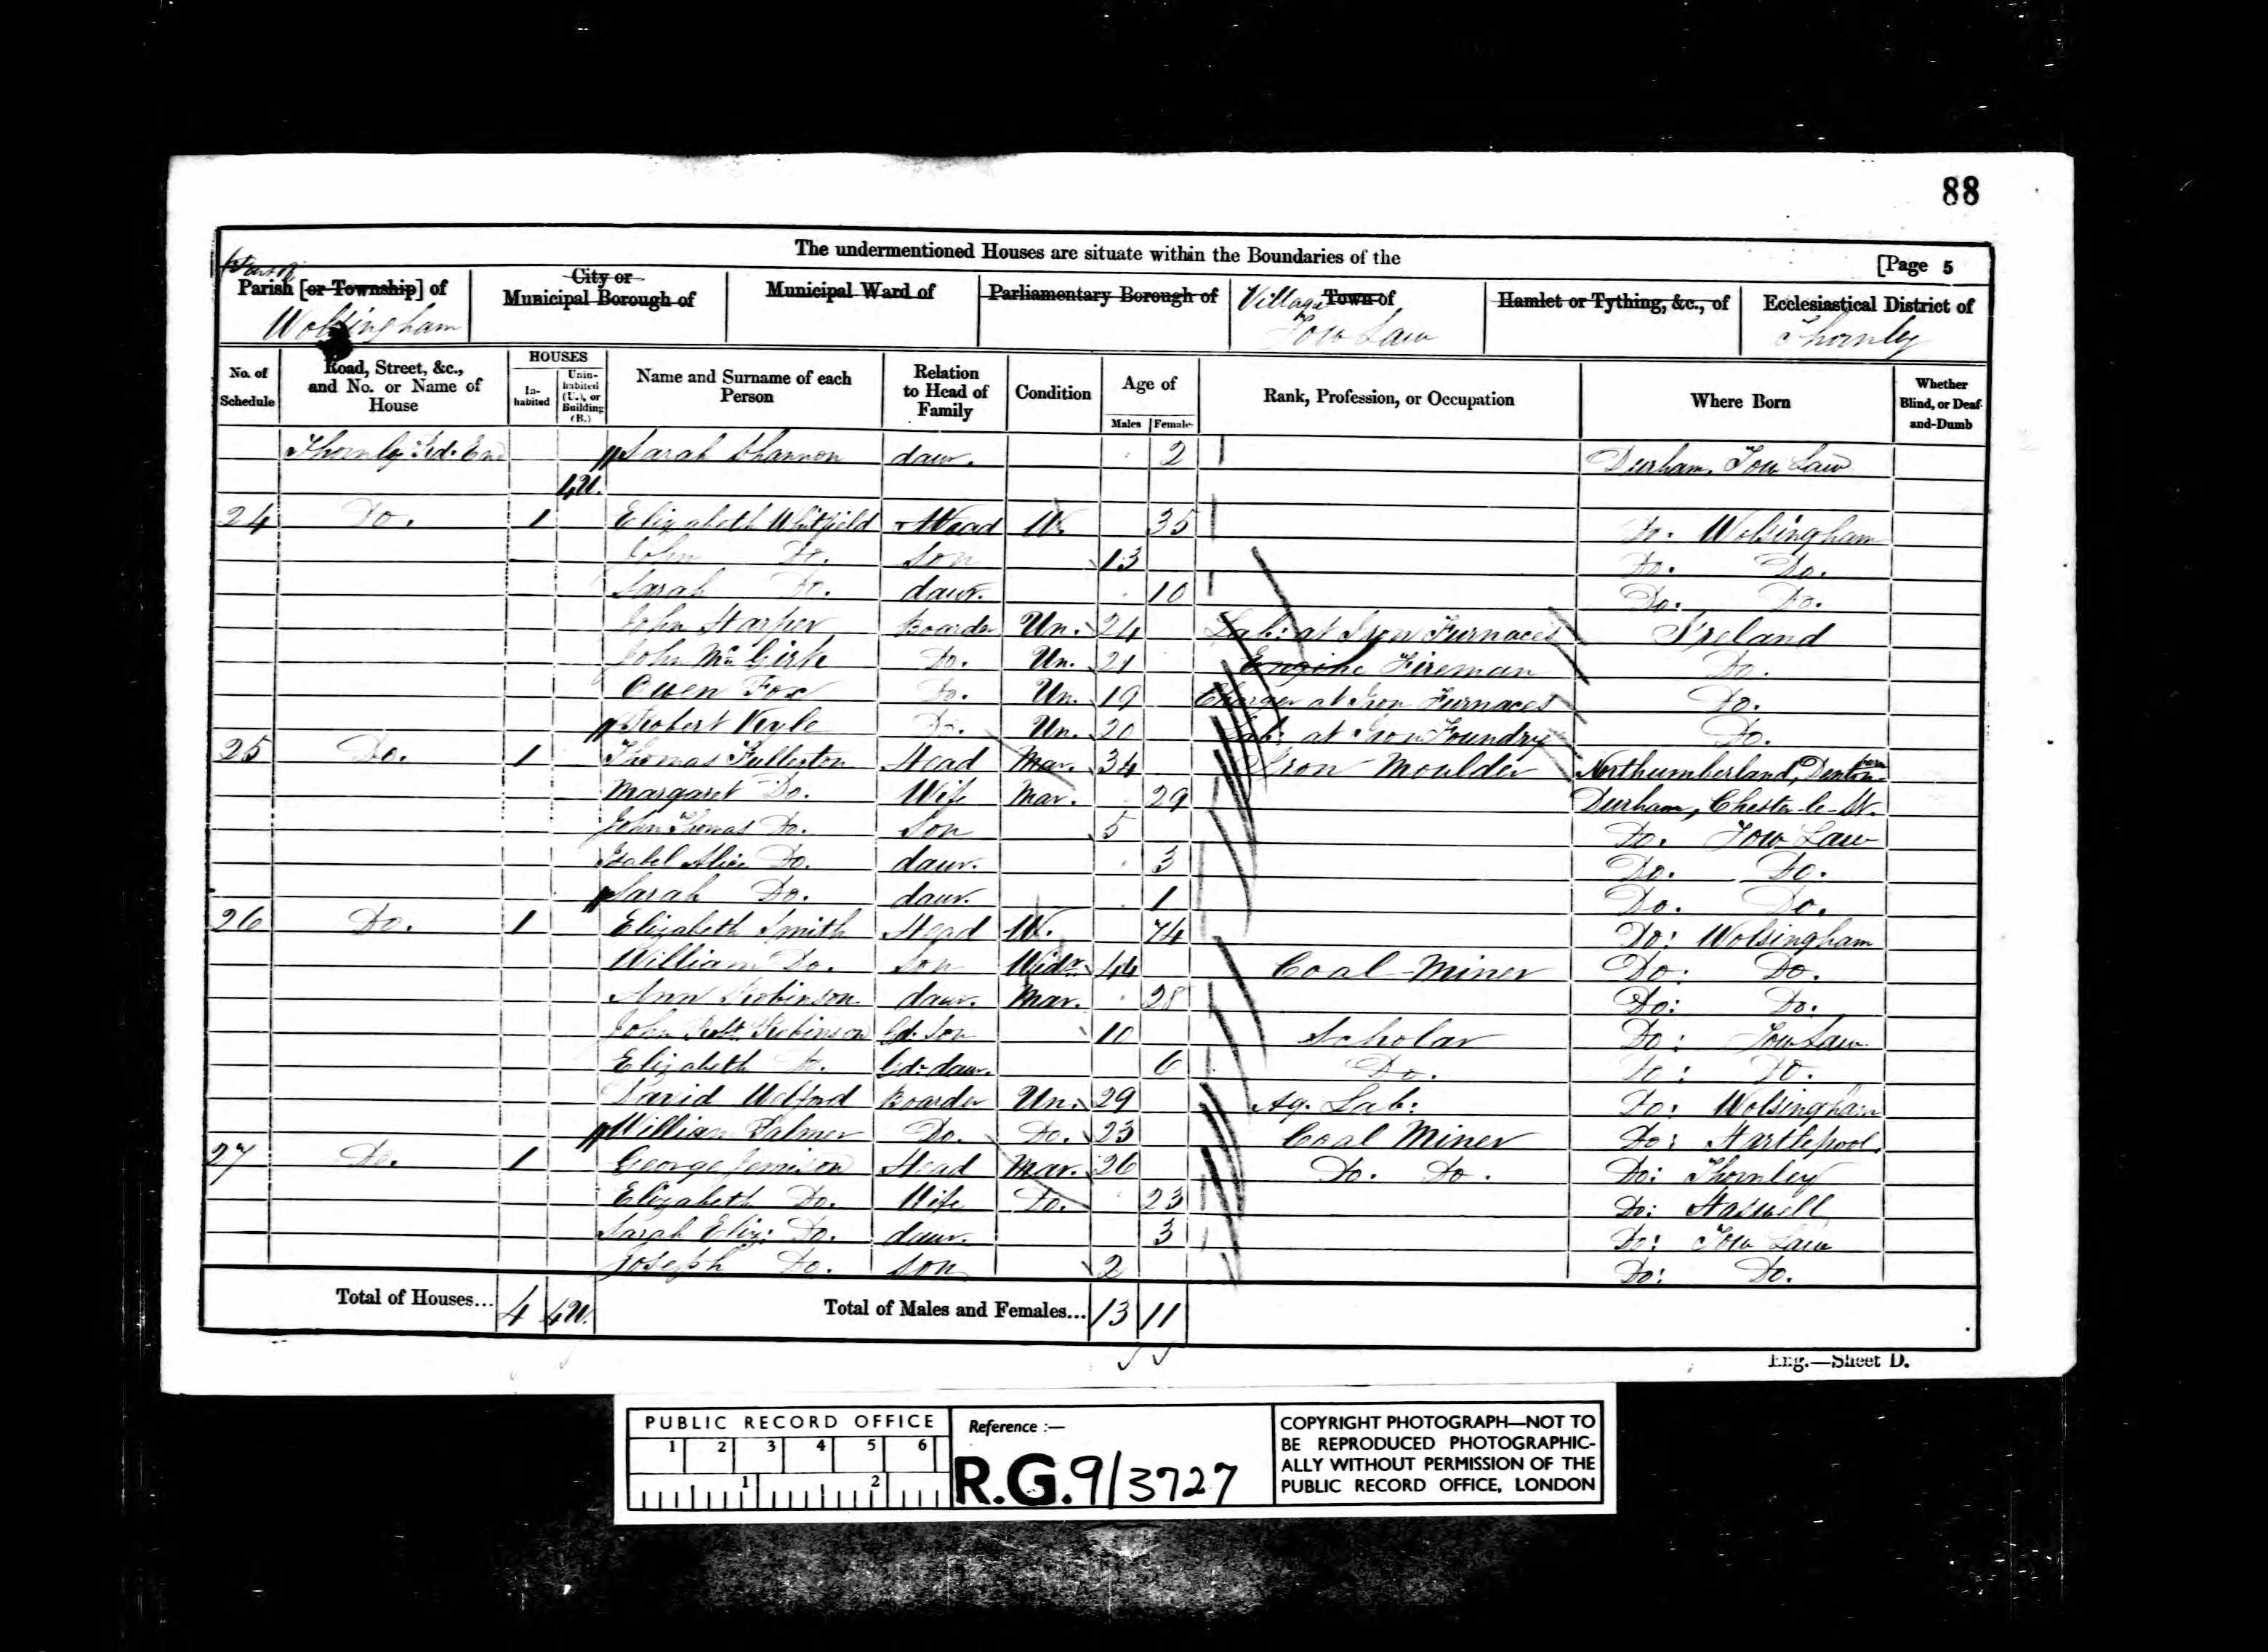 88
The undermentioned Houses are situate within the Boundaries of the
[Page 5
Parish [or Township] of
City or Municipal Borough of
Municipal Ward of
Parliamentary Borough of
Village Town of
Hamlet or Tything, &c., of
Ecclesiastical District of
Wolsingham
Tow Law
Thornley
No. of Schedule
Road, Street, &c., and No. or Name of House
HOUSES
Inhabited
Uninhabited (U.), or Building (B.)
Name and Surname of each Person
Relation to Head of Family
Condition
Age of
Males
Females
Rank, Profession, or Occupation
Where Born
Whether Blind, or Deaf-and-Dumb
Thornley Rd. End Sarah Shannon daur. 2 Durham, Tow Law
4U.
24 Do. 1 Elizabeth Whitfield Head W. 35 Do. Wolsingham
John Do. Son 13 Do. Do.
Sarah Do. daur. 10 Do. Do.
John Harper Boarder Un. 24 Lab: at Iron Furnaces Ireland
John Mc Girk Do. Un. 21 Engine Fireman Do.
Owen Fox Do. Un. 19 Charger at Iron Furnaces Do.
Robert Kyle Do. Un. 20 Lab: at Iron Foundry Do.
25 Do. 1 Thomas Fullerton Head Mar. 34 Iron Moulder Northumberland, Denton
Margaret Do. Wife Mar. 29 Durham, Chester-le-St.
John Thomas Do. Son 5 Do. Tow Law
Isabel Alice Do. daur. 3 Do. Do.
Sarah Do. daur. 1 Do. Do.
26 Do. 1 Elizabeth Smith Head W. 74 Do: Wolsingham
William Do. Son Widr. 44 Coal-Miner Do: Do.
Ann Robinson daur. Mar. 28 Do: Do.
John Robt. Robinson Gd. Son 10 Scholar Do: Tow Law
Elizabeth Do. Gd. daur. 6 Do. Do: Do.
David Welford Boarder Un. 29 Ag. Lab: Do: Wolsingham
William Palmer Do. Do. 23 Coal Miner Do: Hartlepool
27 Do. 1 George Jemison Head Mar. 26 Do. Do. Do: Thornley
Elizabeth Do. Wife Do. 23 Do: Haswell
Sarah Eliz: Do. daur. 3 Do: Tow Law
Joseph Do. Son 2 Do: Do.
Total of Houses... 4 4U. Total of Males and Females... 13 11
Eng.—Sheet D.
PUBLIC RECORD OFFICE
1 2 3 4 5 6
1 2
Reference :—
R.G.9/3727
COPYRIGHT PHOTOGRAPH—NOT TO
BE REPRODUCED PHOTOGRAPHIC-
ALLY WITHOUT PERMISSION OF THE
PUBLIC RECORD OFFICE, LONDON